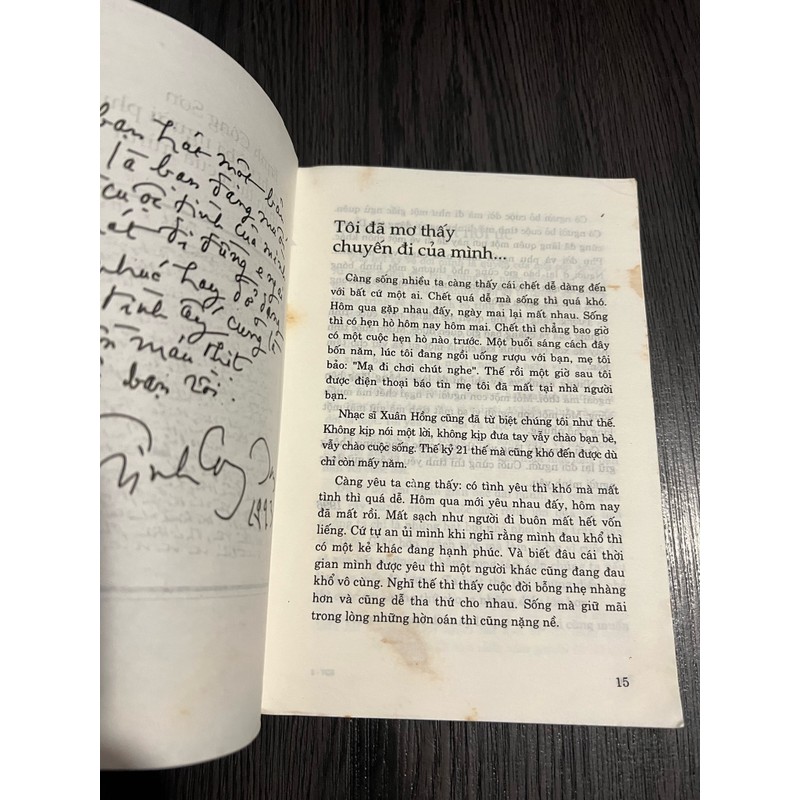 bạn hát một bản
là bạn đang nói
cuộc tình của mình
hát đi đừng e ngại
phúc hay dở dang
cũng là
tình ấy
máu thịt
bạn rồi.
Trịnh Công Sơn
Tôi đã mơ thấy
chuyến đi của mình...
Càng sống nhiều ta càng thấy cái chết dễ dàng đến
với bất cứ một ai. Chết quá dễ mà sống thì quá khó.
Hôm qua gặp nhau đấy, ngày mai lại mất nhau. Sống
thì có hẹn hò hôm nay hôm mai. Chết thì chẳng bao giờ
có một cuộc hẹn hò nào trước. Một buổi sáng cách đây
bốn năm, lúc tôi đang ngồi uống rượu với bạn, mẹ tôi
bảo: "Mạ đi chơi chút nghe". Thế rồi một giờ sau tôi
được điện thoại báo tin mẹ tôi đã mất tại nhà người
bạn.
Nhạc sĩ Xuân Hồng cũng đã từ biệt chúng tôi như thế.
Không kịp nói một lời, không kịp đưa tay vẫy chào bạn bè,
vẫy chào cuộc sống. Thế kỷ 21 thế mà cũng khó đến được dù
chỉ còn mấy năm.
Càng yêu ta càng thấy: có tình yêu thì khó mà mất
tình thì quá dễ. Hôm qua mới yêu nhau đấy, hôm nay
đã mất rồi. Mất sạch như người đi buôn mất hết vốn
liếng. Cứ tự an ủi mình khi nghĩ rằng mình đau khổ thì
có một kẻ khác đang hạnh phúc. Và biết đâu cái thời
gian mình được yêu thì một người khác cũng đang đau
khổ vô cùng. Nghĩ thế thì thấy cuộc đời bỗng nhẹ nhàng
hơn và cũng dễ tha thứ cho nhau. Sống mà giữ mãi
trong lòng những hờn oán thì cũng nặng nề.
15